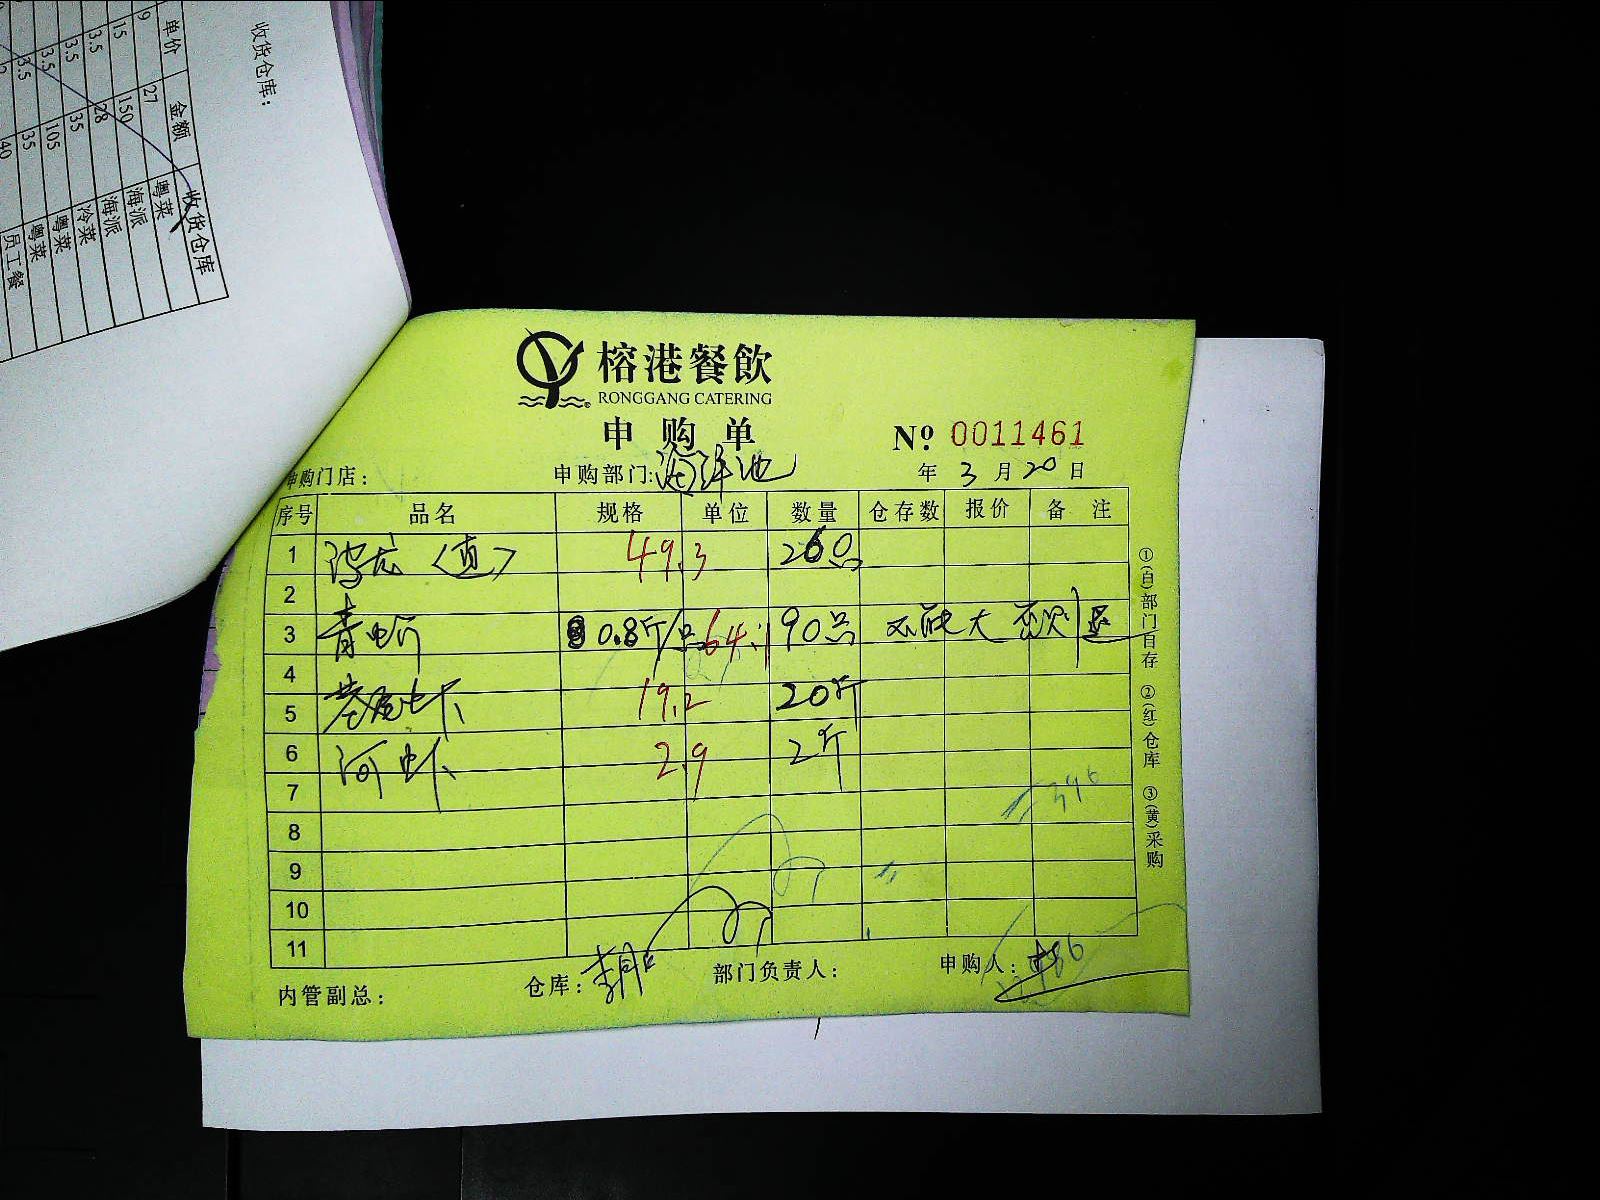 收货仓库：
单价 金额 收货仓库
9 27 粤菜
15 150 海派
3.5 28 海派
3.5 35 冷菜
3.5 105 粤菜
3.5 35 粤菜
40 员工餐
榕港餐飲
RONGGANG CATERING
申购单
Nº 0011461
申购门店： 申购部门：海洋池 年 3 月 20 日
序号 品名 规格 单位 数量 仓存数 报价 备 注
1 波龙〈直〉 49.3 260只
2
3 青蚧 0.8斤/只 64.1 90只 不能大 否则退
4
5 基尾虾 19.2 20斤
6 河虾 2.9 2斤
7
8
9
10
11
内管副总： 仓库： 部门负责人： 申购人：
①(白)部门自存 ②(红)仓库 ③(黄)采购